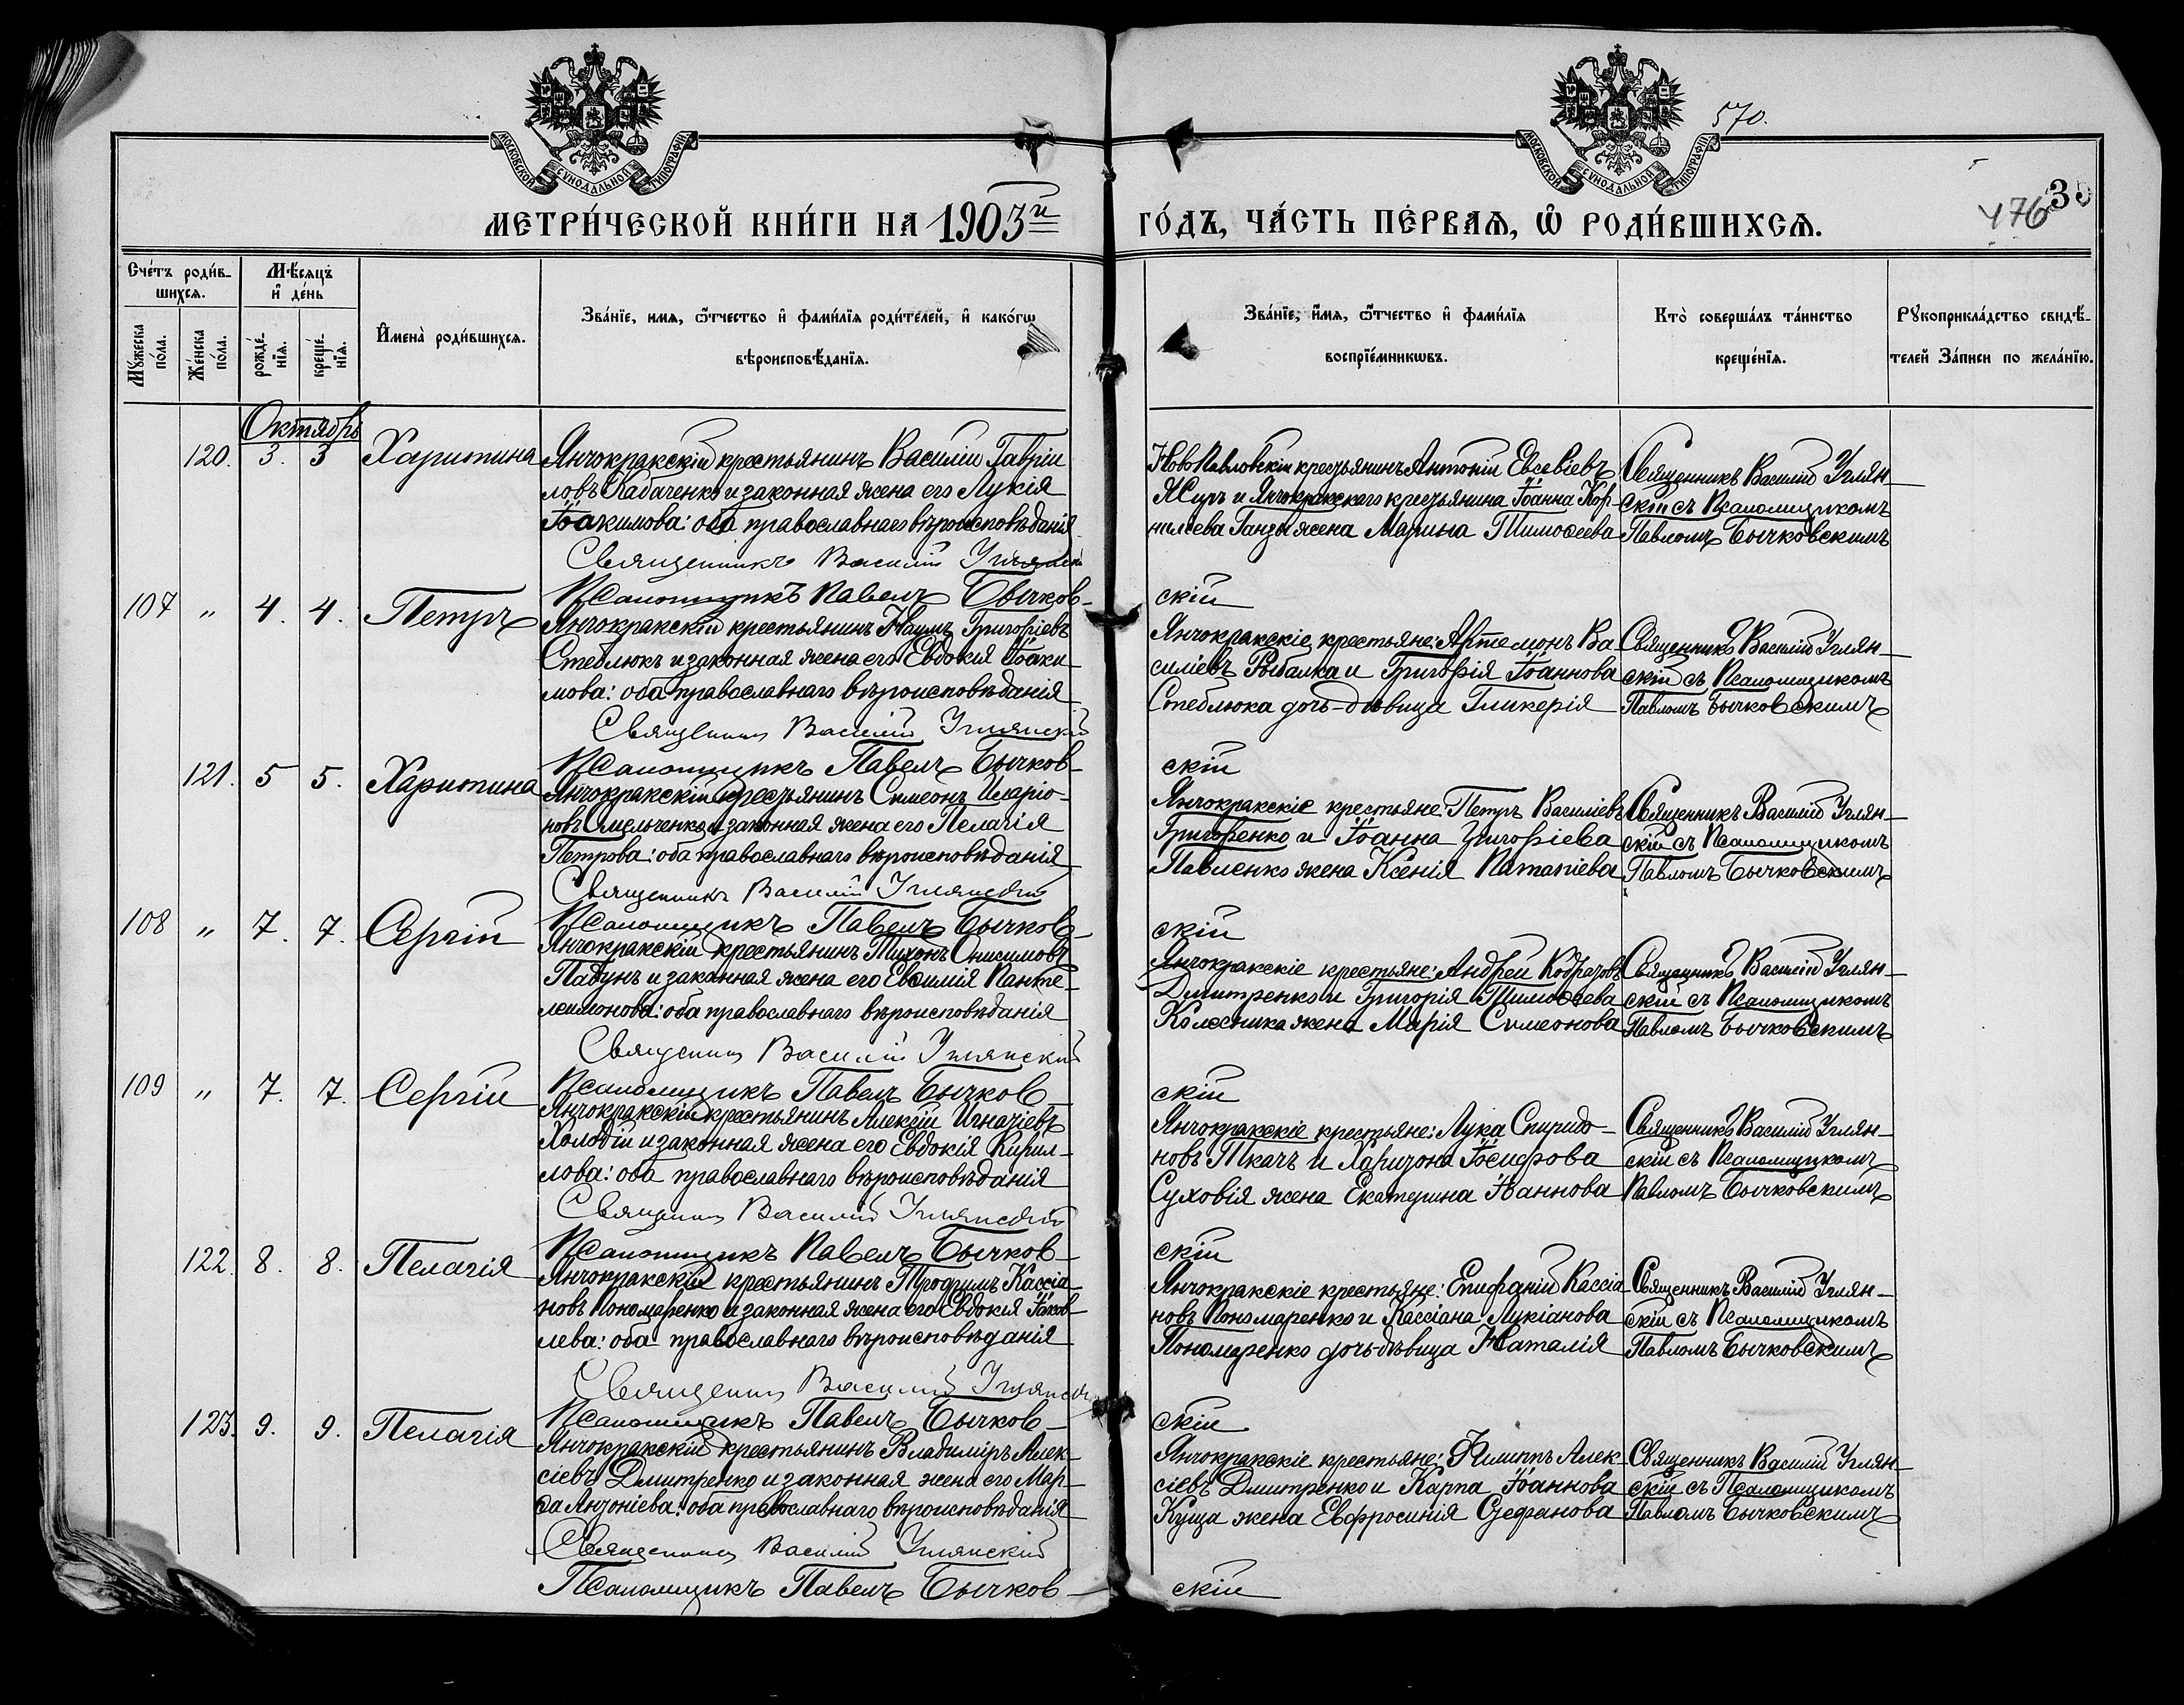 МОСКОВСКОЙ СѴНОДАЛЬНОЙ ТИПОГРАФІИ
МОСКОВСКОЙ СѴНОДАЛЬНОЙ ТИПОГРАФІИ
570.
476
МЕТРИ́ЧЕСКОЙ КНИ́ГИ НА 1903й
ГО́ДЪ, ЧА́СТЬ ПЕ́РВАѦ, Ѡ РОДИ́ВШИХСѦ.
Сче́тъ роди́в-
шихсѧ.
Мꙋ́жеска по́ла.
Же́нска по́ла.
Мѣ́сѧцъ
и҆ де́нь
рожде́-
нїѧ.
креще́-
нїѧ.
И҆мена̀ роди́вшихсѧ.
Зва́нїе, имѧ, ѻ҆́тчество и҆ фами́лїѧ роди́телей, и҆ како́гѡ
вѣроисповѣ́данїѧ.
Зва́нїе, и҆́мѧ, ѻ҆́тчество и҆ фами́лїѧ
воспрїе́мникѡвъ.
Кто̀ соверша́лъ та́инство
креще́нїѧ.
Рꙋкоприкла́дство свидѣ́-
телей За́писи по жела́нїю.
Октябрь
120. 3. 3 Харитина
Янчокракскій крестьянинъ Василій Гаврии
ловъ Кабаченко и законная жена его Лукія
Іоакимова: оба православнаго вѣроисповѣданія
Священникъ Василій Углянскій
Псаломщикъ Павелъ Бычков-
НовоПавловскій крестьянинъ Антоній Евсевіевъ
и Янчокракскаго крестьянина Іоанна Кор-
нилiева Ганзы жена Марина Тимоѳеева
скій
Священникъ Василій Углян-
скій съ Псаломщикомъ
Павломъ Бычковскимъ
107 „ 4. 4. Петръ
Янчокракскій крестьянинъ Наумъ Григоріевъ
Стеблюкъ и законная жена его Евдокія Іоаки-
мова: оба православнаго вѣроисповѣданія
Священникъ Василій Углянскій
Псаломщикъ Павелъ Бычков-
Янчокракскіе крестьяне: Артемонъ Ва
силіевъ Рыбалка и Григорія Іоаннова
Стеблюка дочь-дѣвица Гликерія
скій
Священникъ Василій Углян-
скій съ Псаломщикомъ
Павломъ Бычковскимъ
121. 5 5. Харитина
Янчокракскій крестьянинъ Симеонъ Иларіо-
новъ Омельченко и законная жена его Пелагія
Петрова: оба православнаго вѣроисповѣданія
Священникъ Василій Углянскій
Псаломщикъ Павелъ Бычков-
Янчокракскіе крестьяне Петръ Василіевъ
Григоренко и Іоанна Григоріева
Павленко жена Ксенія Патапіева
скій
Священникъ Василій Углян-
скій съ Псаломщикомъ
Павломъ Бычковскимъ
108 „ 7. 7. Сергій
Янчокракскій крестьянинъ Тихонъ Онисимовъ
и законная жена его Евѳимія Панте-
леимонова: оба православнаго вѣроисповѣданія
Священникъ Василій Углянскій
Псаломщикъ Павелъ Бычков-
Янчокракскіе крестьяне: Андрей Кодратовъ
Дмитренко и Григорія Тимоѳеева
Колесника жена Марія Симеонова
скій
Священникъ Василій Углян-
скій съ Псаломщикомъ
Павломъ Бычковскимъ
109 „ 7. 7. Сергій
Янчокракскій крестьянинъ Алексій Игнатіевъ
Холодій и законная жена его Евдокія Кирил-
лова: оба православнаго вѣроисповѣданія
Священникъ Василій Углянскій
Псаломщикъ Павелъ Бычков-
Янчокракскіе крестьяне: Лука Спиридо-
новъ Ткачъ и Харитона Іосифова
Суховія жена Екатерина Іоаннова
скій
Священникъ Василій Углян-
скій съ Псаломщикомъ
Павломъ Бычковскимъ
122. 8. 8. Пелагія
Янчокракскій крестьянинъ Трофимъ Кассіа
новъ Пономаренко и законная жена его Евдокія Іаков-
лева: оба православнаго вѣроисповѣданія
Священникъ Василій Углянскій
Псаломщикъ Павелъ Бычков-
Янчокракскіе крестьяне: Епифаній Кассіа
новъ Пономаренко и Кассіана Лукіанова
Пономаренко дочь-дѣвица Наталія
скій
Священникъ Василій Углян-
скій съ Псаломщикомъ
Павломъ Бычковскимъ
123. 9. 9. Пелагія
Янчокракскій крестьянинъ Владиміръ Алек-
сіевъ Дмитренко и законная жена его Мар-
ѳа Антоніева: оба православнаго вѣроисповѣданія
Священникъ Василій Углянскій
Псаломщикъ Павелъ Бычков-
Янчокракскіе крестьяне: Филиппъ Алек-
сіевъ Дмитренко и Карпа Іоаннова
Куща жена Евфросинія Стефанова
скій
Священникъ Василій Углян-
скій съ Псаломщикомъ
Павломъ Бычковскимъ